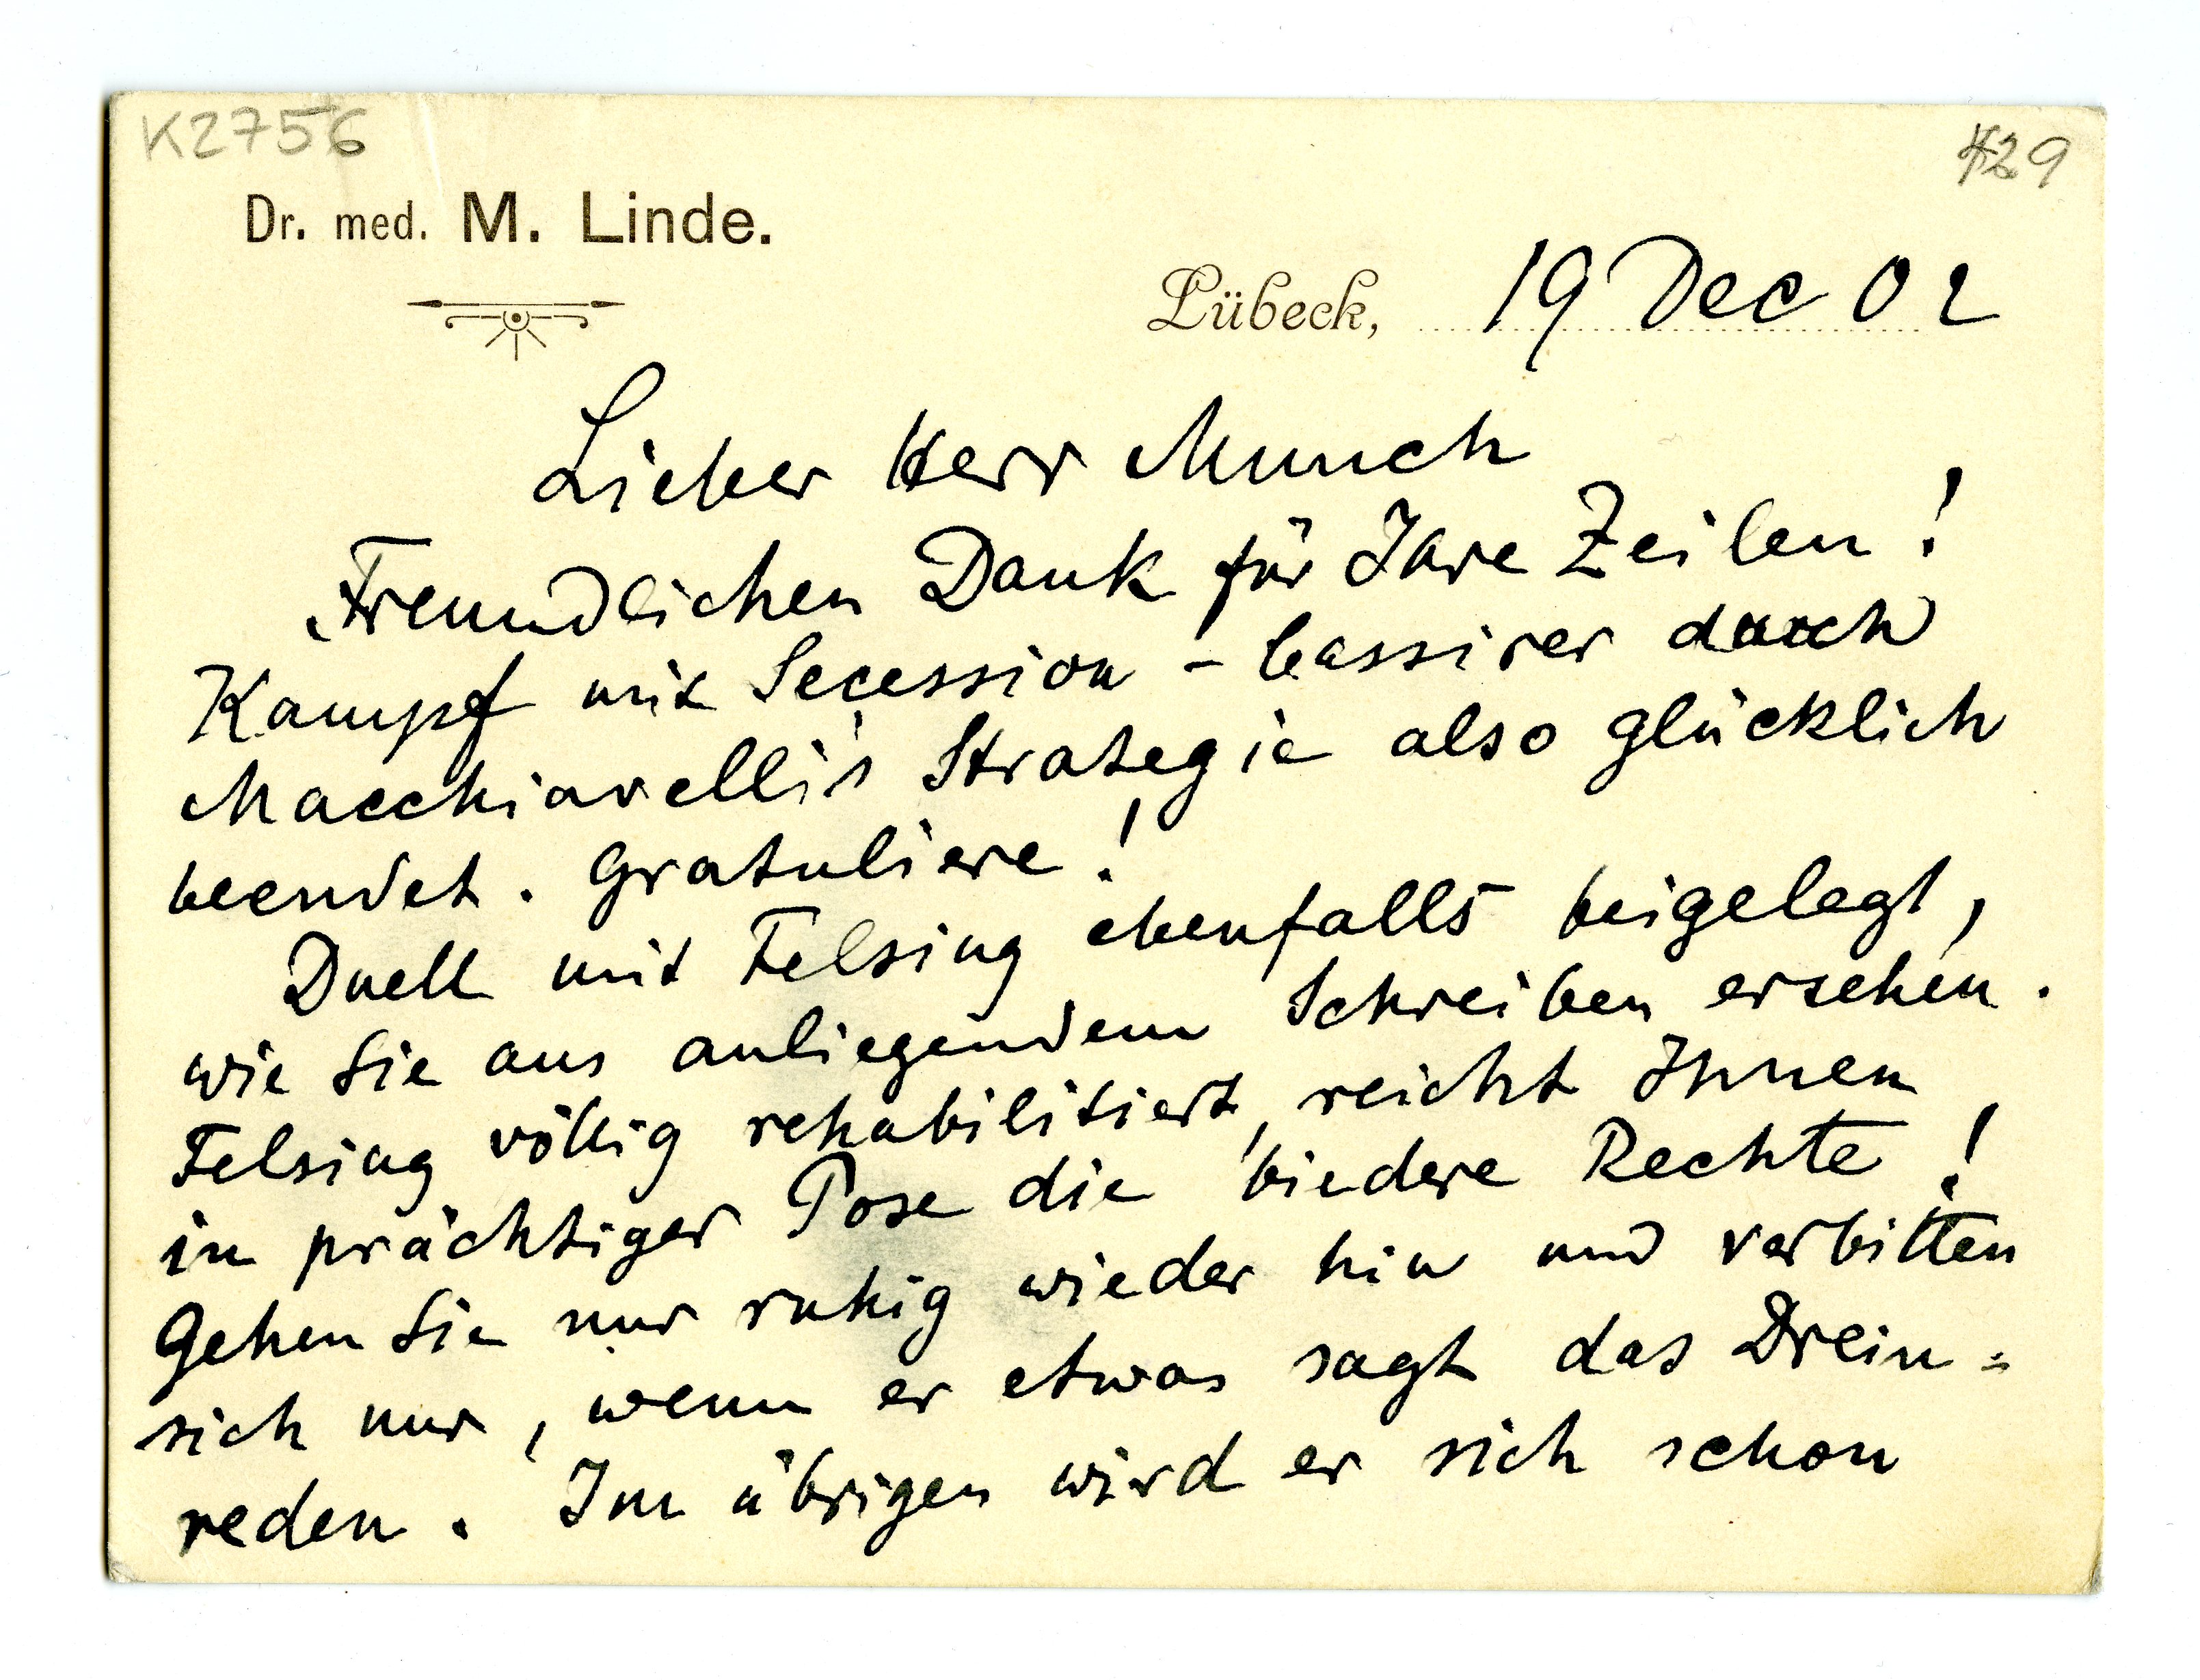 K2756
29
Dr. med. M. Linde.
Lübeck, 19 Dec 02
Lieber Herr Munch
Freundlichen Dank für Ihre Zeilen!
Kampf mit Secession - Cassirer durch
Macchiavelli's Strategie also glücklich
beendet. Gratuliere!
Duell mit Felsing ebenfalls beigelegt,
wie Sie aus anliegendem Schreiben ersehen.
Felsing völlig rehabilitiert, reicht Ihnen
in prächtiger Pose die biedere Rechte!
Gehen Sie nur ruhig wieder hin und verbitten
sich nur, wenn er etwas sagt das Drein=
reden. Im übrigen wird er sich schon